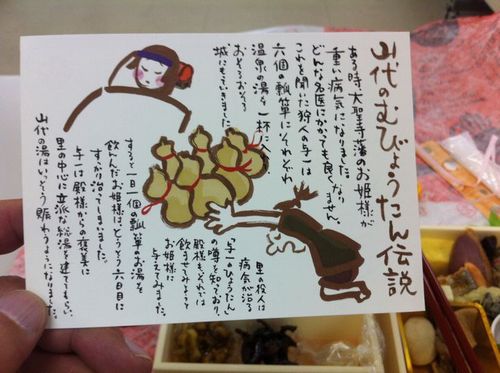 山代のむびょうたん伝説
ある時、大聖寺藩のお姫様が
重い病気になりました。
どんな名医にかかっても良くなりません。
これを聞いた狩人の与一は
六個の瓢箪にそれぞれ
温泉の湯を一杯に入れ
おそるおそる
城にもっていきました。
里の役人は
病気が治る
「与一のひょうたん」
の噂を知っており、
殿様も、それでは
飲ませてみようと
お姫様に
与えてみました。
すると一日一個の瓢箪のお湯を
飲んだお姫様は、とうとう六日目に
すっかり治ってしまいました。
与一は殿様からの褒美に
里の中心に立派な総湯を建ててもらい、
山代の湯はいっそう賑わうようになりました。